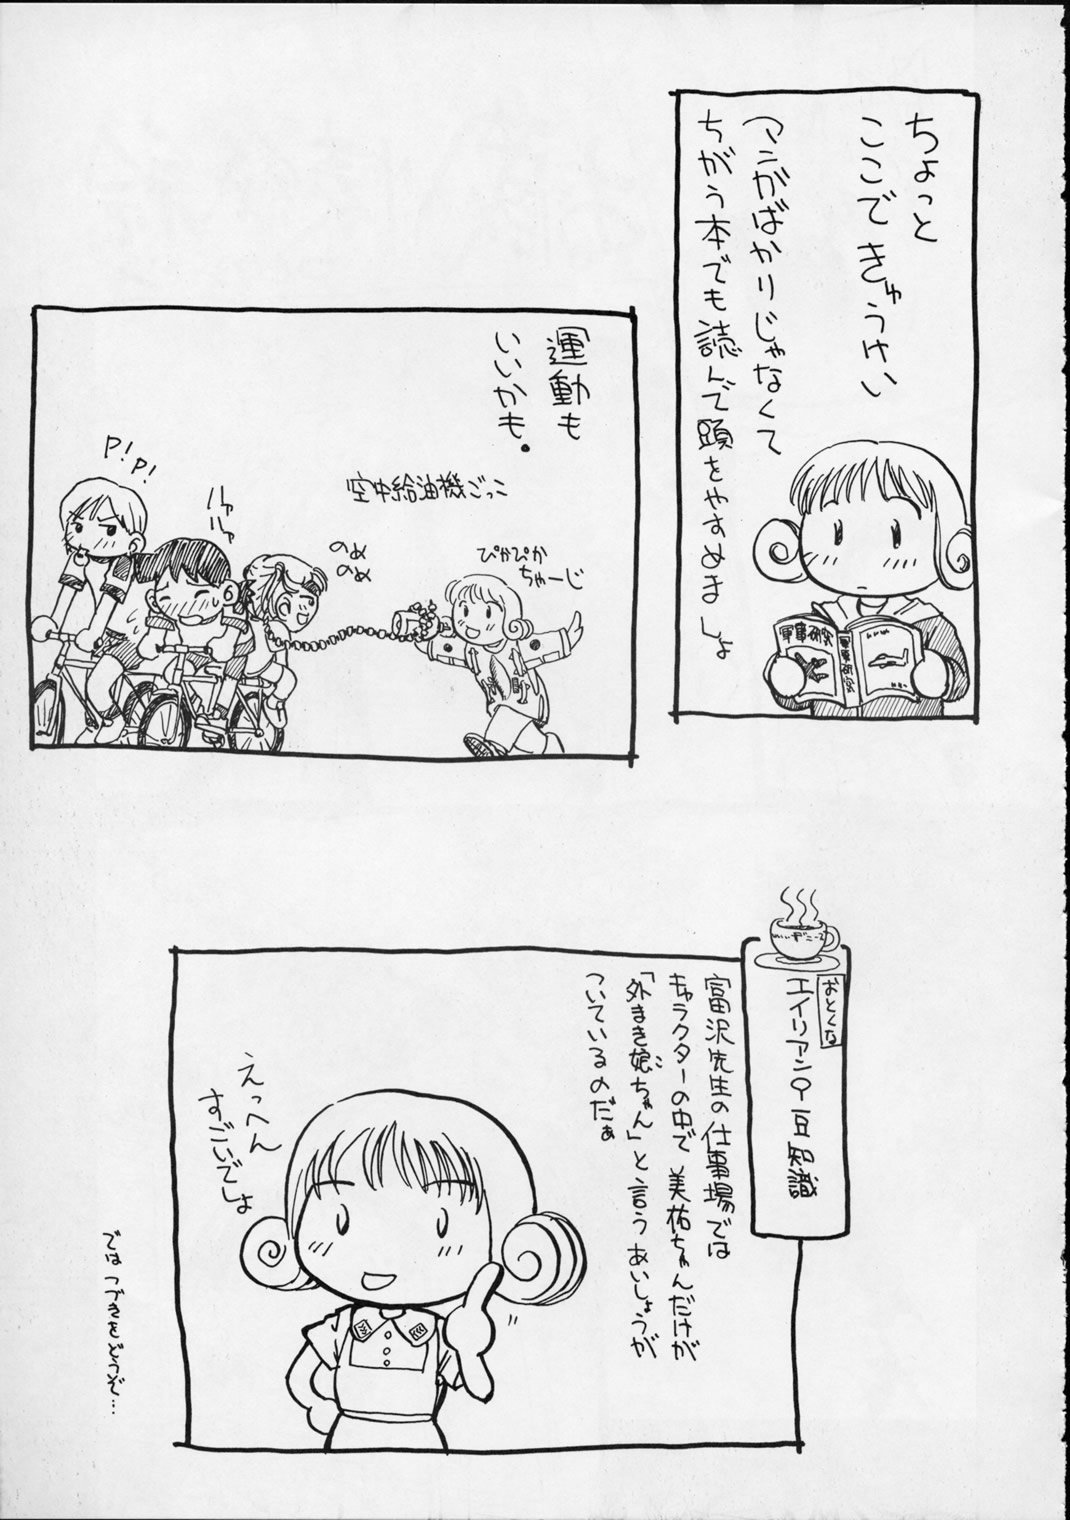 ちょっと
ここできゅうけい
マンガばかりじゃなくて
ちがう本でも読んで頭をやすめましょ
軍事研究
軍事研究
運動も
いいかも。
空中給油機ごっこ
P!
P!
ハァ
ハァ
のめ
のめ
ぴかぴか
ちゃーじ
おとくな
エイリアン♀豆知識
富沢先生の仕事場では
キャラクターの中で美祐ちゃんだけが
「外まき娘ちゃん」と言うあいしょうが
ついているのだぁ
えっへん
すごいでしょ
ではつづきをどうぞ…